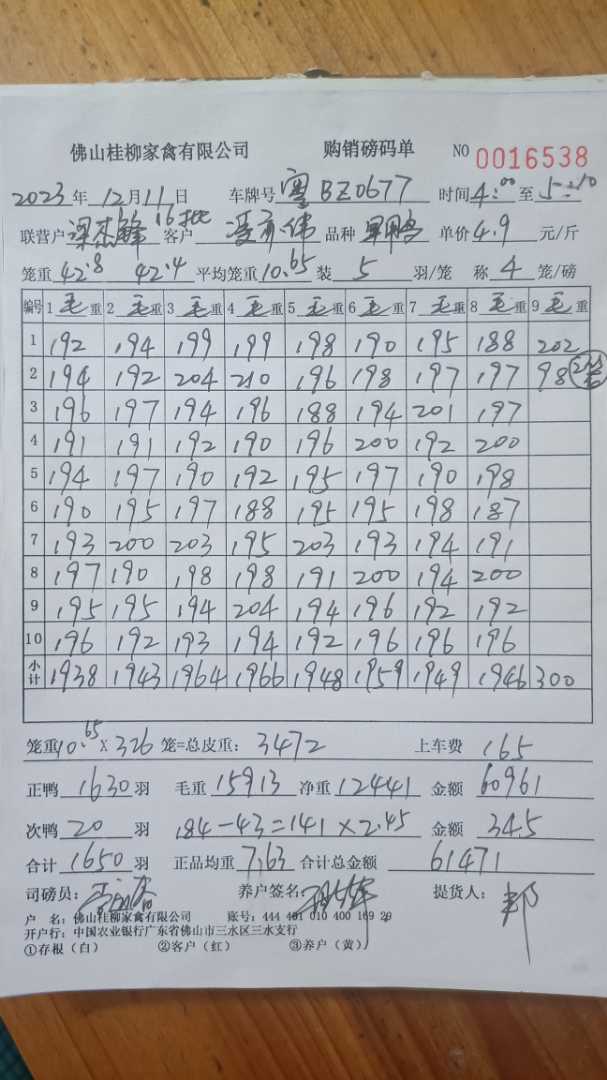 佛山桂柳家禽有限公司 购销磅码单 NO 0016538
2023年12月11日 车牌号 粤BZ0677 时间4:00至5:10
联营户 梁杰锋16批 客户 品种 单价4.9元/斤
笼重42.8 42.4 平均笼重10.65 装5羽/笼 称4笼/磅
编号 1毛重 2毛重 3毛重 4毛重 5毛重 6毛重 7毛重 8毛重 9毛重
1 192 194 199 199 198 190 195 188 202
2 194 192 204 210 196 198 197 197 98
3 196 197 194 196 188 194 201 197
4 191 191 192 190 196 200 192 200
5 194 197 190 192 195 197 190 198
6 190 195 197 188 195 195 198 187
7 193 200 203 195 203 193 194 191
8 197 190 198 198 191 200 194 200
9 195 195 194 204 194 196 192 192
10 196 192 193 194 192 196 196 196
小计 1938 1943 1964 1966 1948 1959 1949 1946 300
笼重10.65×326笼=总皮重:3472 上车费165
正鸭1630羽 毛重15913 净重12441 金额60961
次鸭20羽 184-43=141×2.45 金额345
合计1650羽 正品均重7.63 合计总金额61471
司磅员: 养户签名: 提货人:
户 名:佛山桂柳家禽有限公司 账号:444 401 010 400 169 29
开户行:中国农业银行广东省佛山市三水区三水支行
①存根(白) ②客户(红) ③养户(黄)